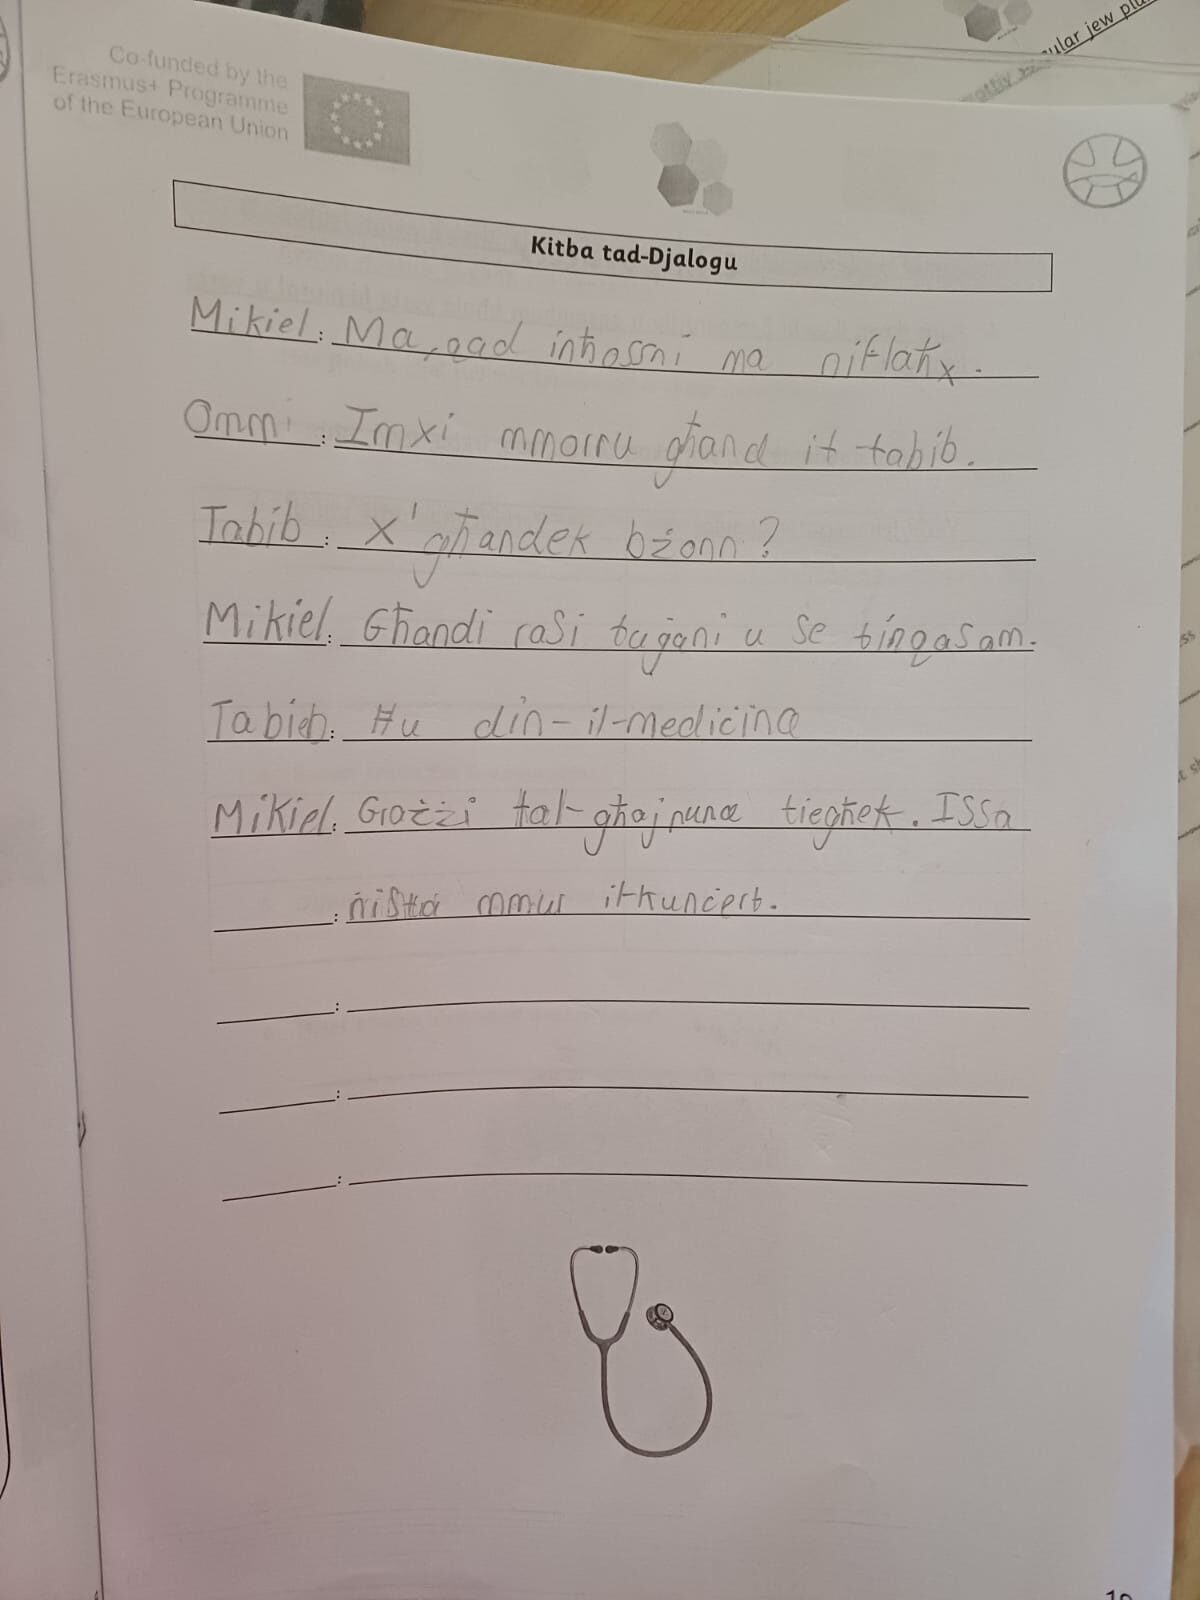 Co-funded by the
Erasmus+ Programme
of the European Union
ular jew plu
Kitba tad-Djalogu
Mikiel: Ma, qad inħossni ma niflaħx.
Ommi: Imxi mmorru għand it-tabib.
Tabib: X'għandek bżonn?
Mikiel: Għandi rasi tuġgħani u se tinqasam.
Tabieb: Ħu din-il-mediċina
Mikiel: Grazzi tal-għajnuna tiegħek. Issa
: nista mmur il-kunċert.
:
:
: